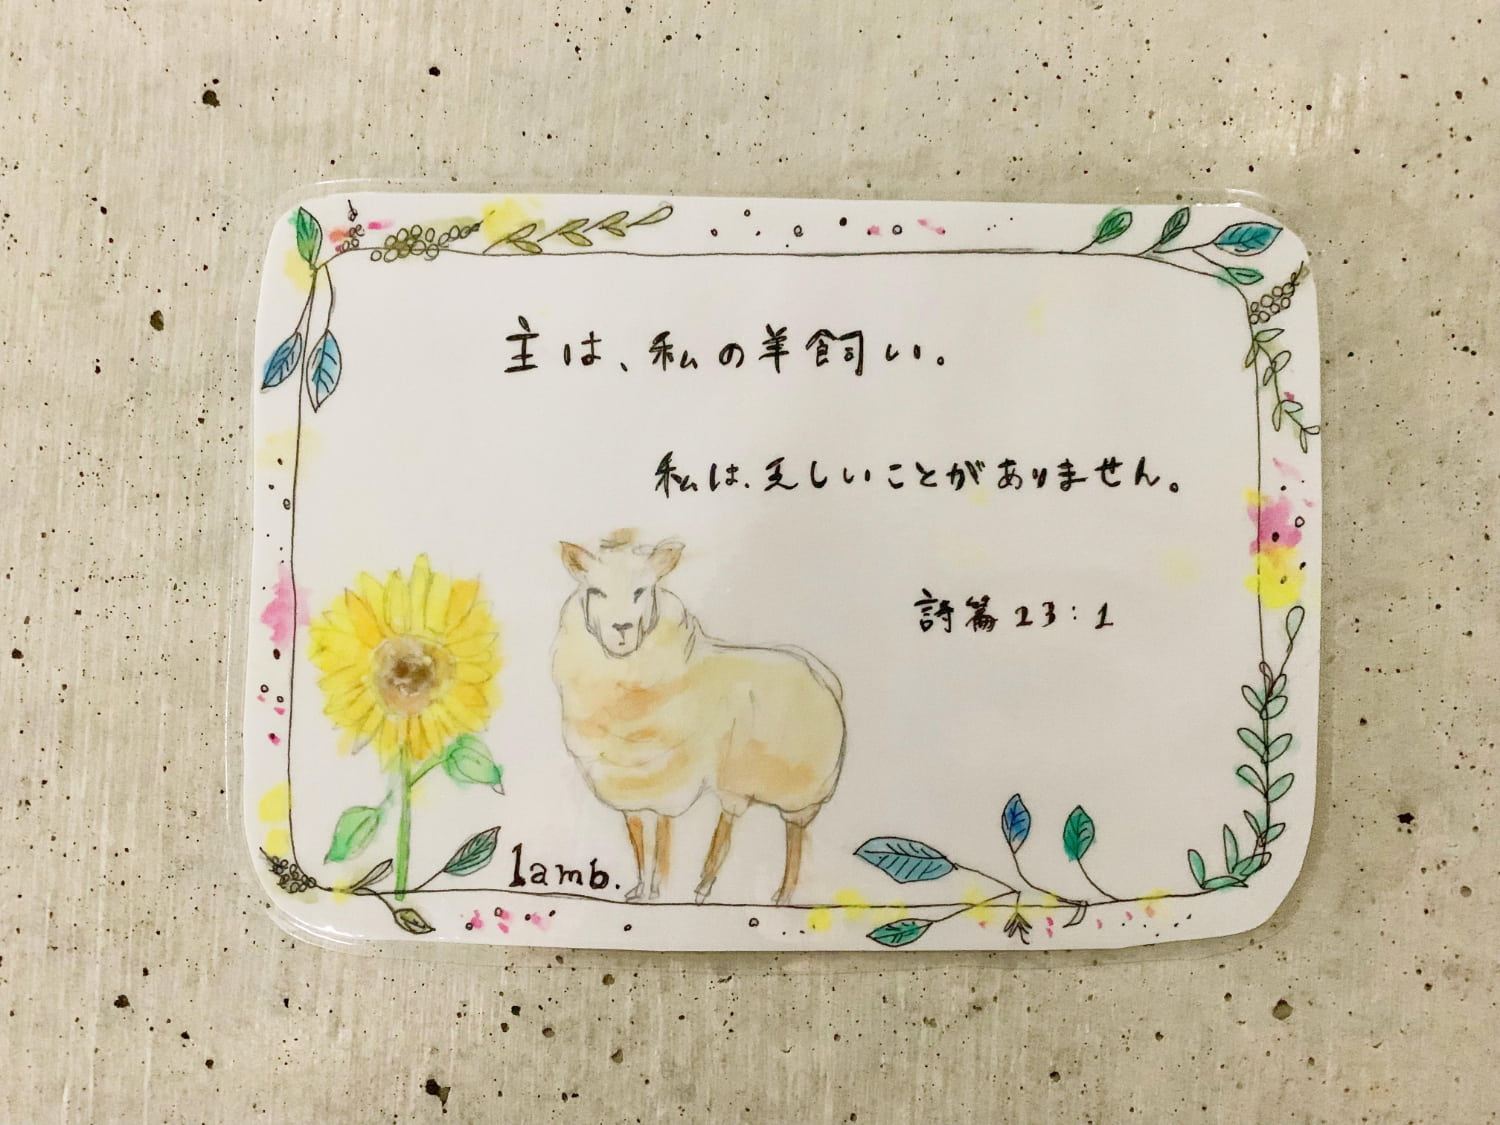 主は、私の羊飼い。
私は、乏しいことがありません。
詩篇23:1
lamb.